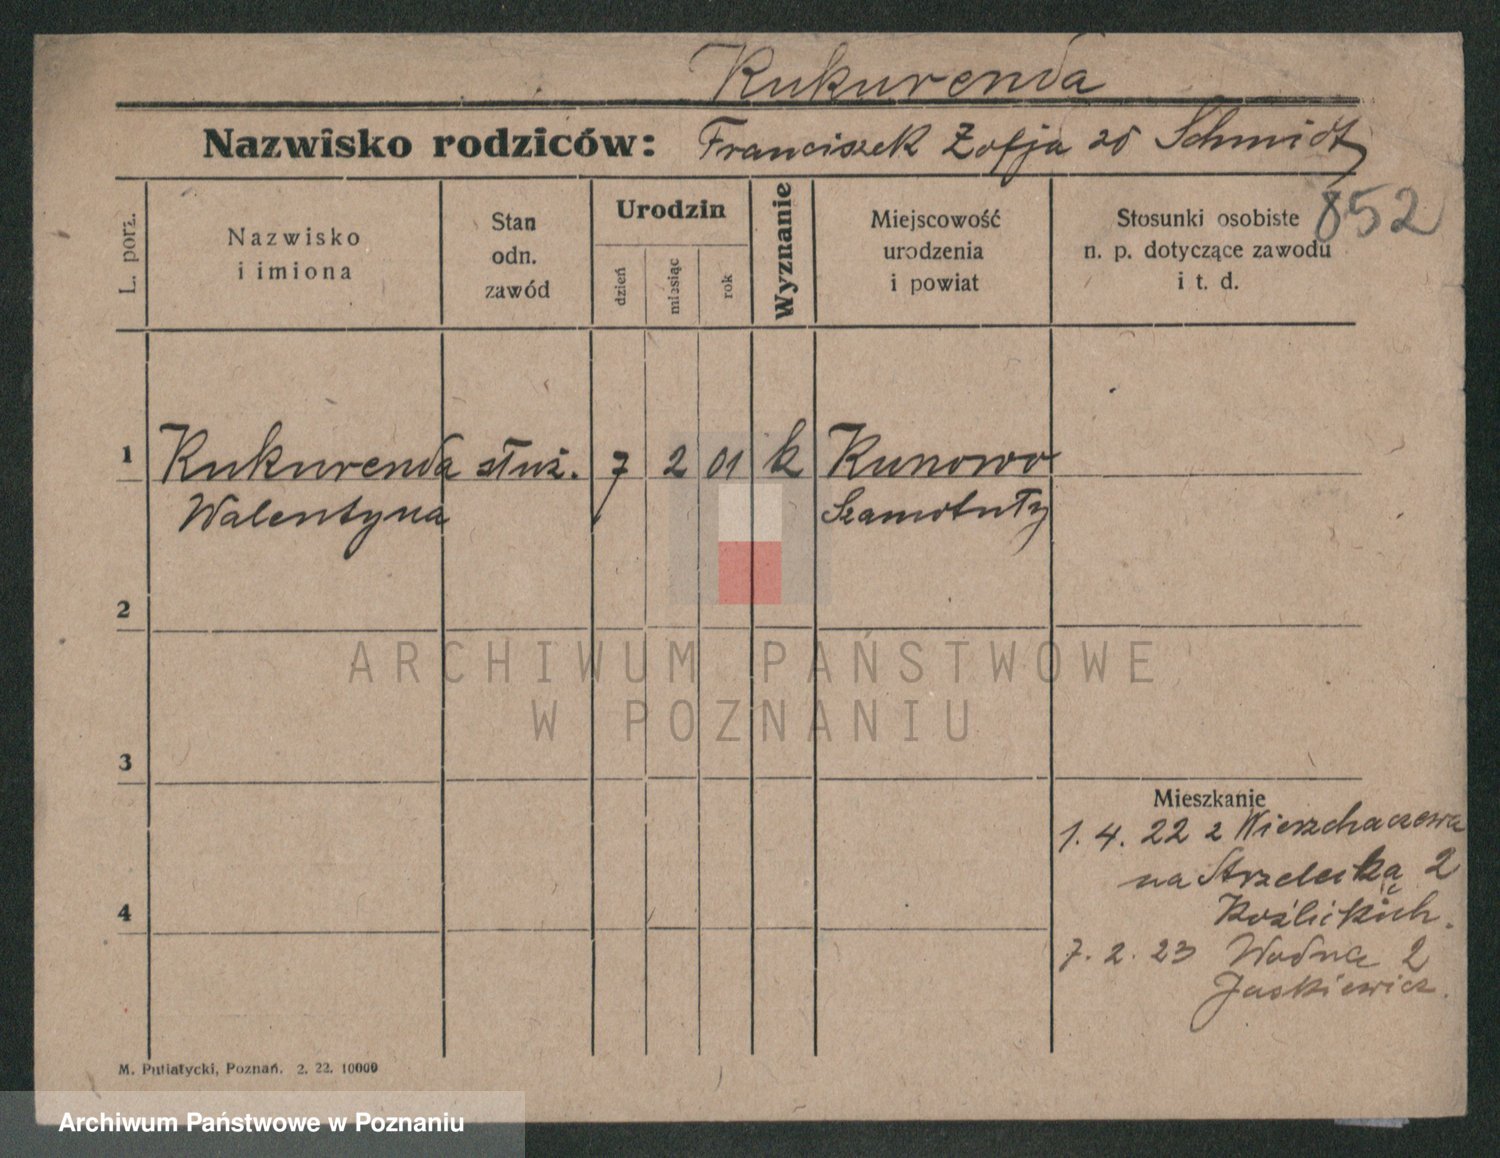 Kukurenda
Nazwisko rodziców: Franciszek Zofja zd Schmidt
852
L. porz.
Nazwisko
i imiona
Stan
odn.
zawód
Urodzin
dzień
miesiąc
rok
Wyznanie
Miejscowość
urodzenia
i powiat
Stosunki osobiste
n. p. dotyczące zawodu
i t. d.
1 Kukurenda służ. 7 2 01 k Kunowo
Walentyna Szamotuły
2
ARCHIWUM PAŃSTWOWE
W POZNANIU
3
Mieszkanie
1. 4. 22 z Wierzchaczewa
na Strzelecką 2
Koźlickich.
4
7. 2. 23 Wodna 2
Jaskiewicz.
M. Putiatycki, Poznań. 2. 22. 10000
Archiwum Państwowe w Poznaniu